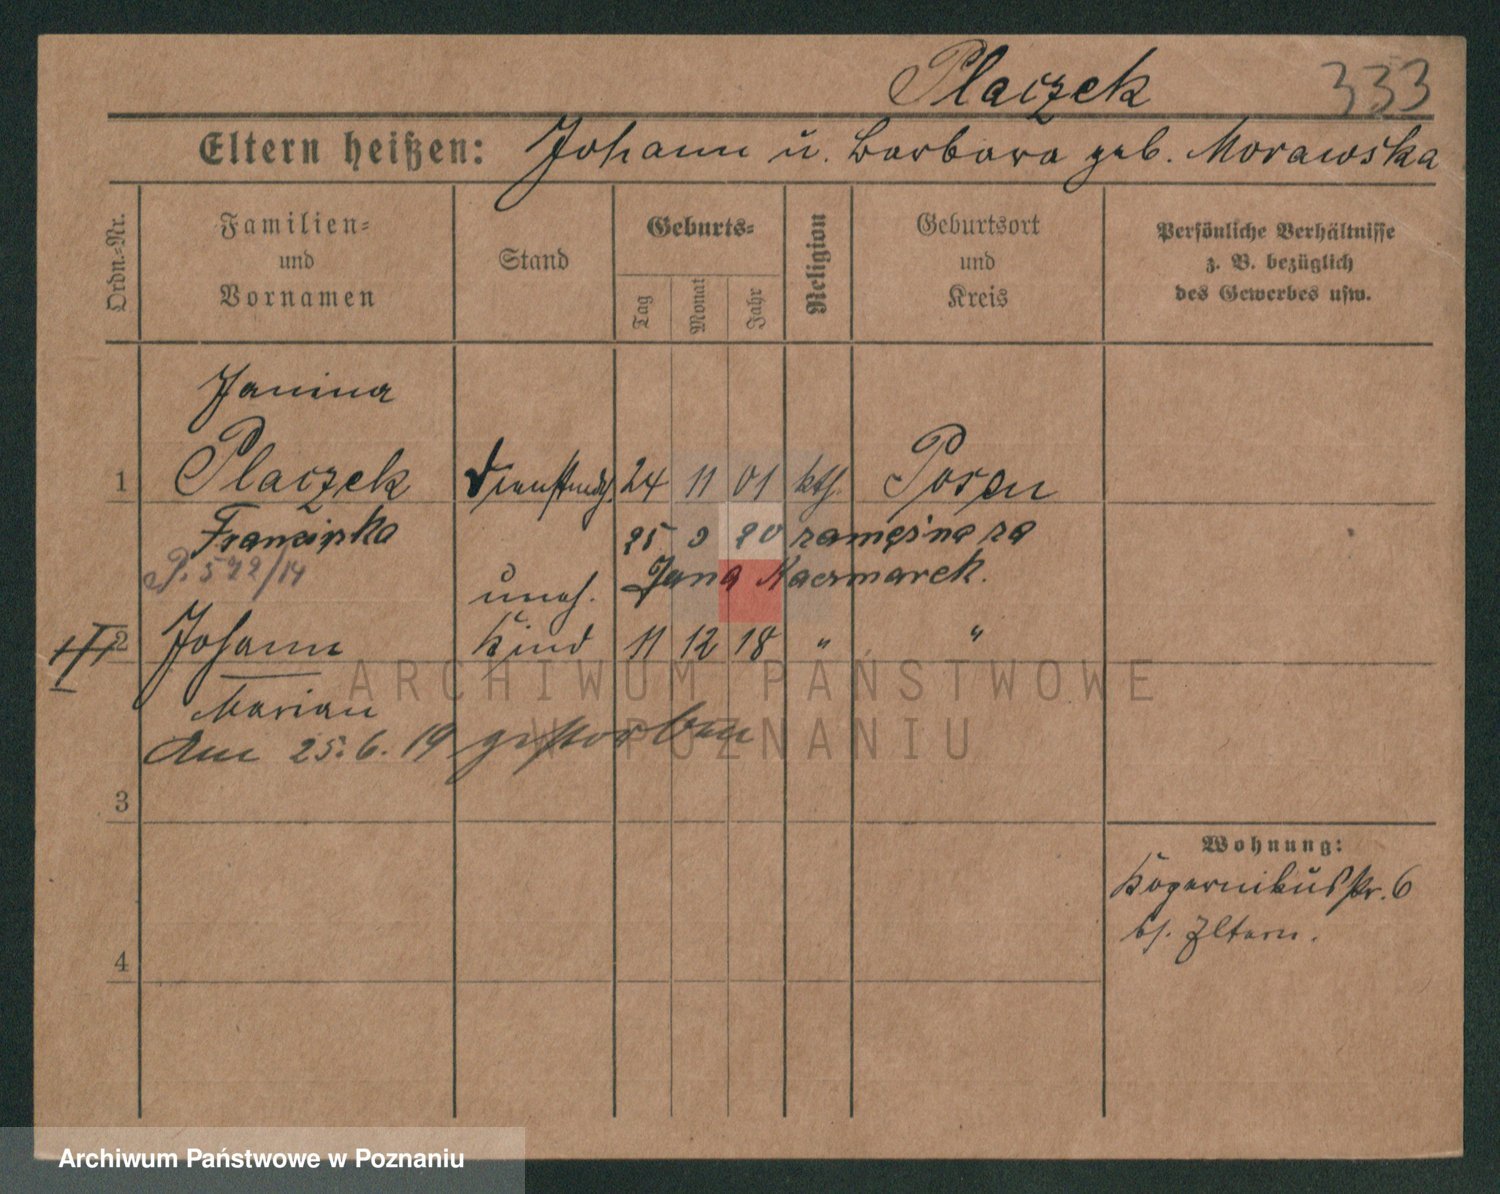 Placzek 333
Eltern heißen: Johann u. Barbara geb. Morawska
Ordn.-Nr.
Familien- und Vornamen
Stand
Geburts-
Tag Monat Jahr
Religion
Geburtsort und Kreis
Persönliche Verhältnisse
z. B. bezüglich
des Gewerbes usw.
Janina
1 Placzek Dienstmdch. 24 11 01 kth. Posen
Franciska 25 9 20 zamężna za
P. 522/14
Jana Kaczmarek.
uneh.
2 Johann Kind 11 12 18 " "
Marian
Am 25.6.19 gestorben
3
Wohnung:
Kopernikusstr. 6
bs. Eltern.
4
ARCHIWUM PAŃSTWOWE
W POZNANIU
Archiwum Państwowe w Poznaniu